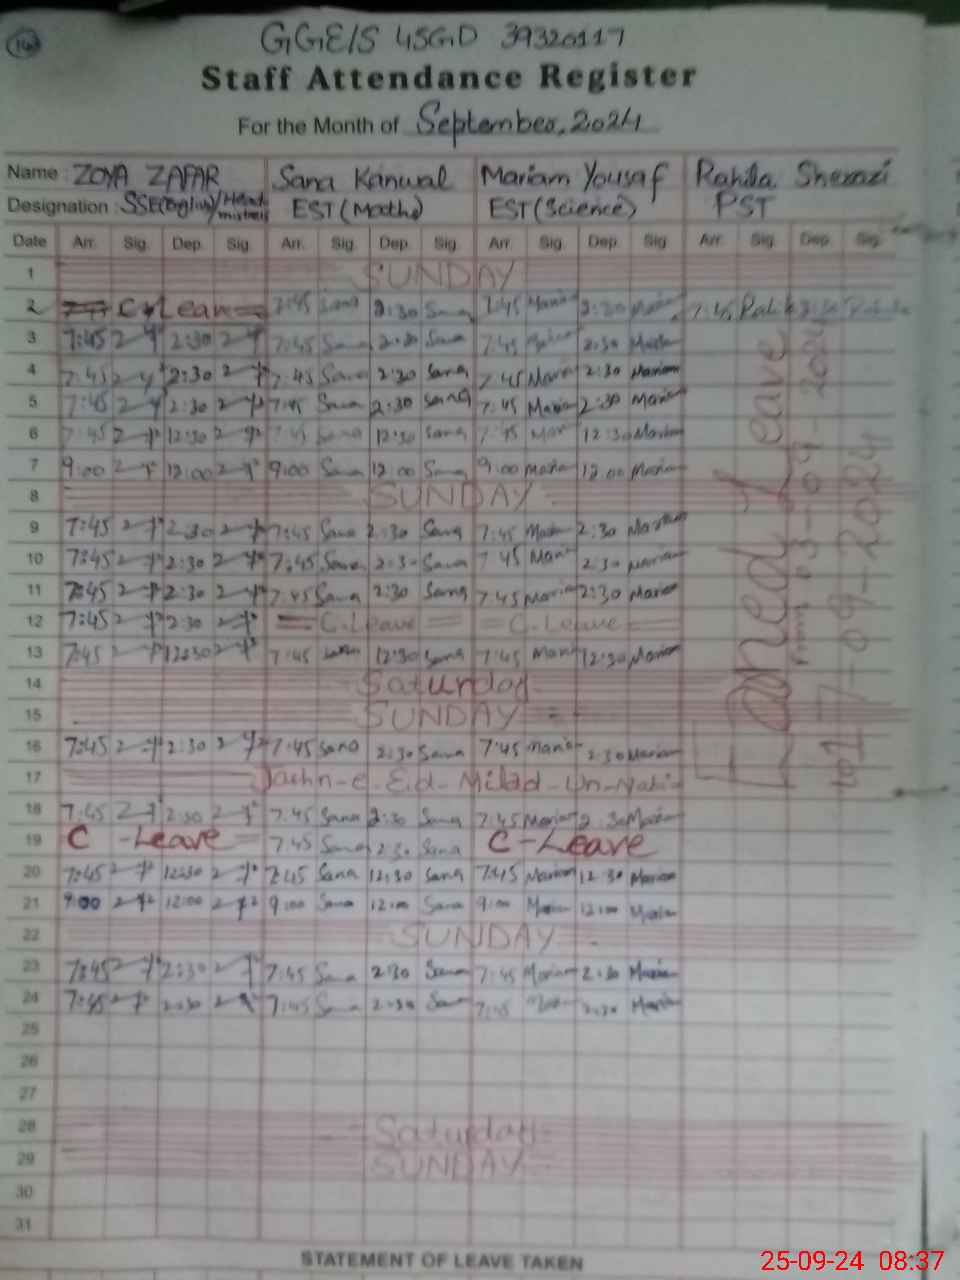 GGE/S 45GD 39320117
Staff Attendance Register
For the Month of September, 2024
Name : ZOYA ZAFAR Sana Kanwal Mariam Yousaf Rahila Sherazi
Designation : SSE(English)/Headmistress EST (Maths) EST (Science) PST
Date Arr. Sig. Dep. Sig. Arr. Sig. Dep. Sig. Arr. Sig. Dep. Sig. Arr. Sig. Dep. Sig.
1 SUNDAY
2 C-Leave 7:45 Sana 2:30 Sana 7:45 Maria 2:30 7:45
3 7:45 2:30 7:45 Sana 2:30 Sana 7:45 2:30 Mariam
4 7:45 2:30 7:45 Sana 2:30 Sana 7:45 Maria 2:30 Mariam
5 7:45 2:30 7:45 Sana 2:30 Sana 7:45 Maria 2:30 Maria
6 7:45 12:30 7:45 Sana 12:30 Sana 7:45 Mari 12:30 Mariam
7 9:00 12:00 9:00 Sana 12:00 Sana 9:00 Maria 12:00 Maria
8 SUNDAY
9 7:45 2:30 7:45 Sana 2:30 Sana 7:45 2:30 Mariam
10 7:45 2:30 7:45 Sana 2:3- Sana 7:45 Mari 2:30 Mariam
11 7:45 2:30 7:45 Sana 2:30 Sana 7:45 Maria 2:30 Mariam
12 7:45 2:30 C.Leave C.Leave
13 7:45 12:30 7:45 12:30 Sana 7:45 Mari 12:30 Mariam
14 Saturday
15 SUNDAY
16 7:45 2:30 7:45 Sana 2:30 Sana 7:45 Maria 2:30 Mariam
17 Jachn-e-Eid-Milad-Un-Nabi
18 7:45 2:30 7:45 Sana 2:30 Sana 7:45 Maria 2:30 Maria
19 C-Leave 7:45 Sana 2:30 Sana C-Leave
20 7:45 12:30 7:45 Sana 12:30 Sana 7:45 Mariam 12:30 Mariam
21 9:00 12:00 9:00 Sana 12:00 Sana 9:00 Mariam 12:00 Maria
22 SUNDAY
23 7:45 2:30 7:45 Sana 2:30 Sana 7:45 Mariam 2:30 Maria
24 7:45 2:30 7:45 Sana 2:30 Sana 7:45 2:30 Maria
25
26
27
28 Saturday
29 SUNDAY
30
31
Earned Leave
from 03-09-2024
to 17-09-2024
STATEMENT OF LEAVE TAKEN
25-09-24 08:37